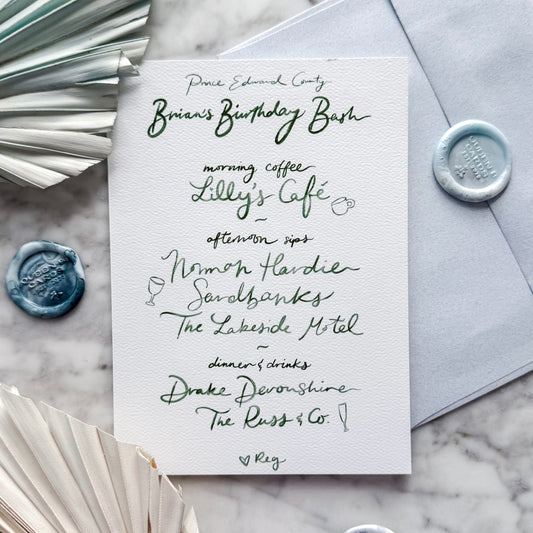 Prince Edward County
Brian's Birthday Bash
morning coffee
Lilly's Café
~
afternoon sips
Norman Hardie
Sandbanks
The Lakeside Motel
~
dinner & drinks
Drake Devonshire
The Russ & Co.
♡ Reg